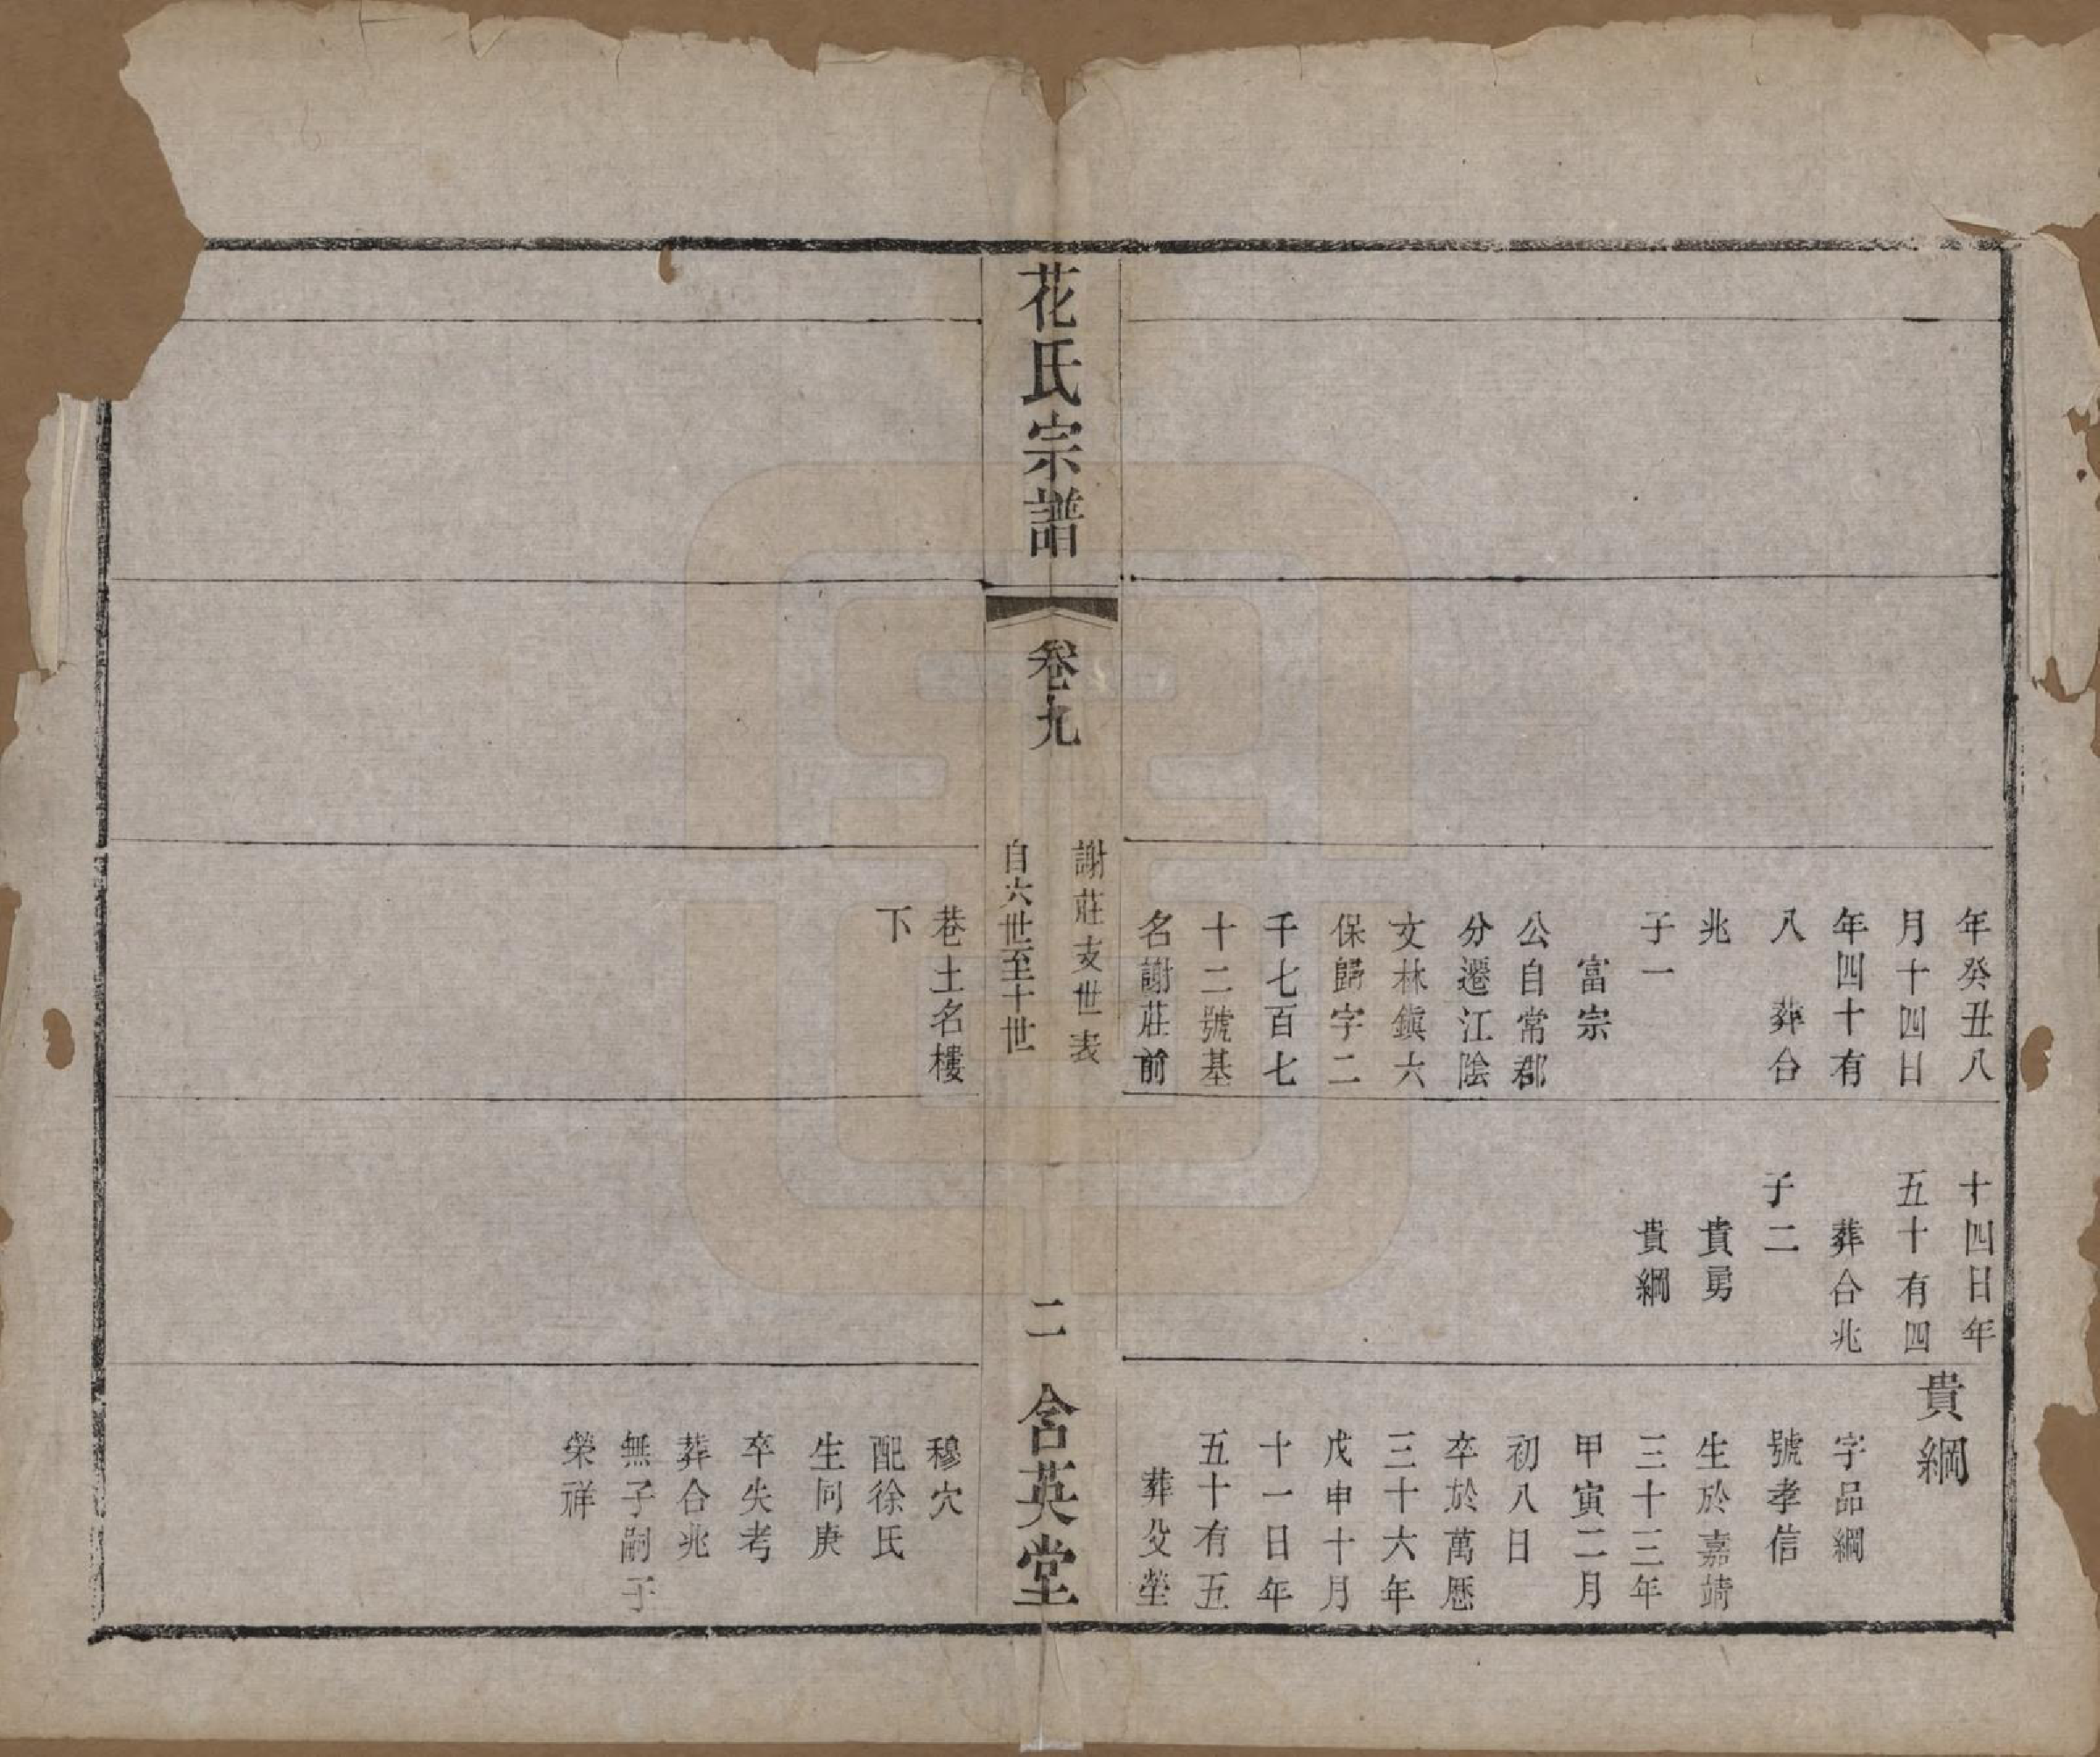 年癸丑八
月十四日
年四十有
八　葬合
兆
子一
富宗
公自常郡
分遷江陰
文林鎮六
保歸字二
千七百七
十二號基
名謝莊前
巷土名樓
下
十四日年
五十有四
葬合兆
子二
貴勇
貴綱
貴綱
字品綱
號孝信
生於嘉靖
三十三年
甲寅二月
初八日
卒於萬歷
三十六年
戊申十月
十一日年
五十有五
葬父塋
穆穴
配徐氏
生同庚
卒失考
葬合兆
無子嗣子
榮祥
花氏宗譜
卷九
謝莊支世表
自六世至十世
二
含英堂